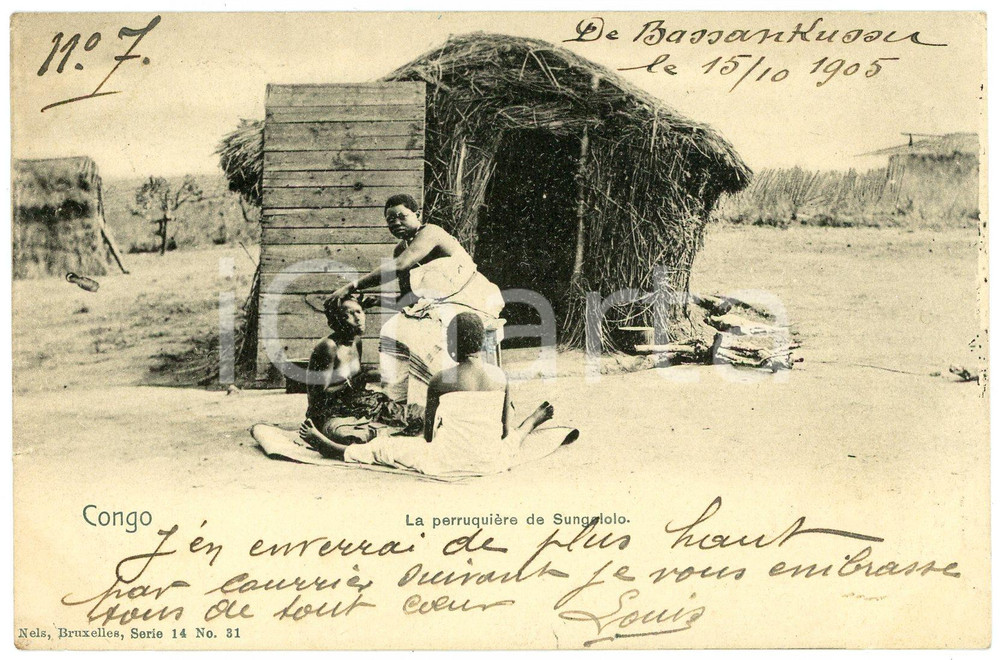 nº 7.
De Bassankussu
le 15/10 1905
iCharta
Congo
La perruquière de Sungololo.
J'én enverrai de plus haut
par courrier suivant Je vous embrasse
tous de tout cœur Louis
Nels, Bruxelles, Serie 14 No. 31